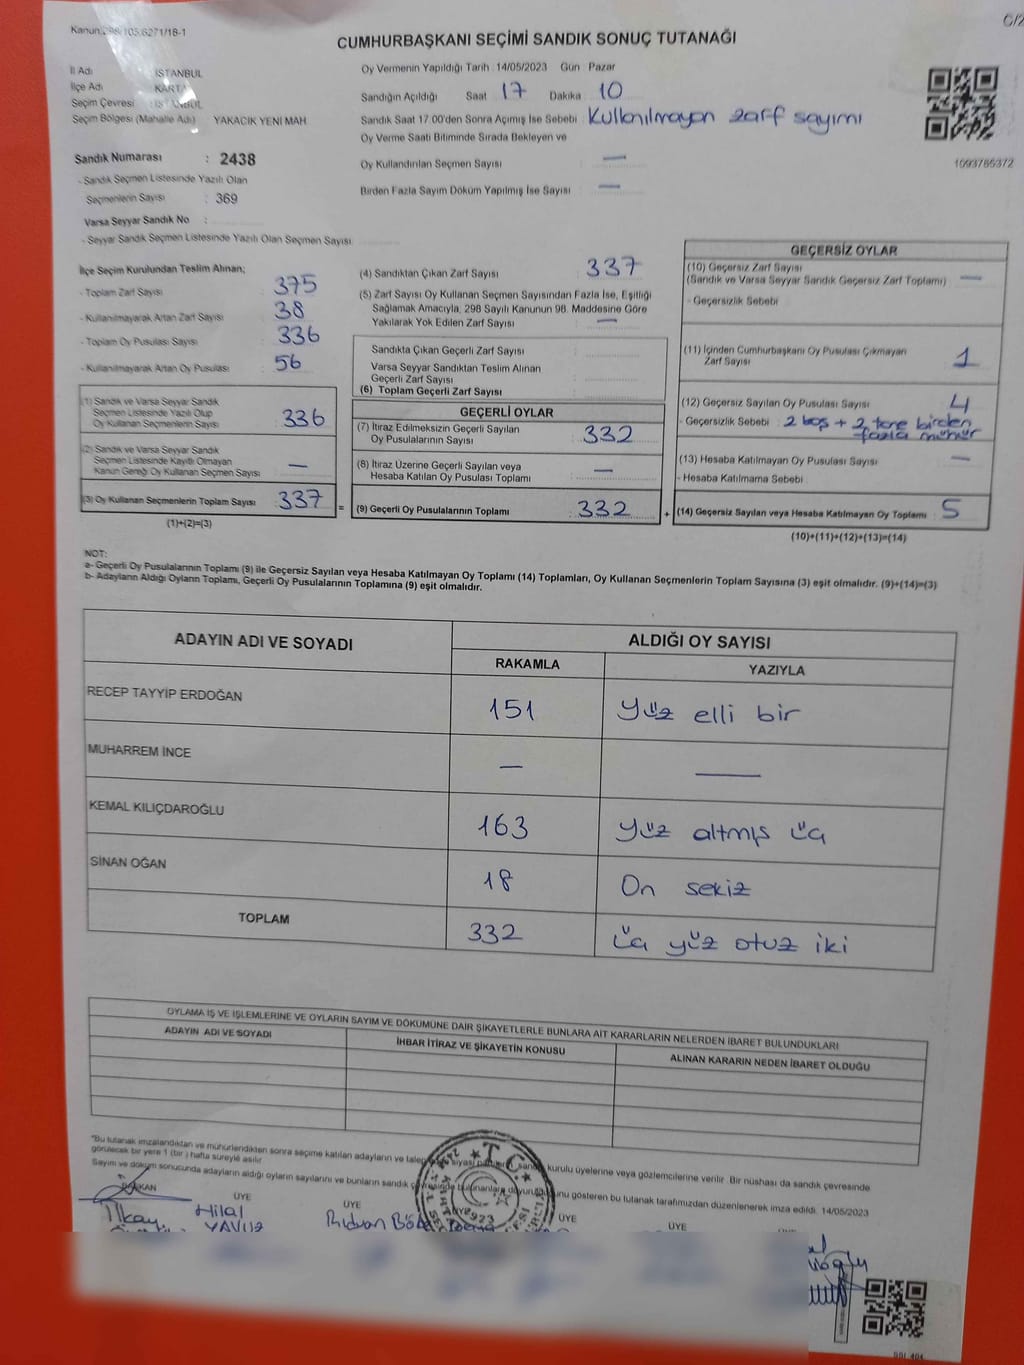 Kanun:298/105,6271/18-1
C/2
CUMHURBAŞKANI SEÇİMİ SANDIK SONUÇ TUTANAĞI
İl Adı : İSTANBUL
İlçe Adı KARTAL
Seçim Çevresi : İSTANBUL
Seçim Bölgesi (Mahalle Adı) YAKACIK YENİ MAH.
Sandık Numarası : 2438
- Sandık Seçmen Listesinde Yazılı Olan
Seçmenlerin Sayısı : 369
Varsa Seyyar Sandık No :
- Seyyar Sandık Seçmen Listesinde Yazılı Olan Seçmen Sayısı
Oy Vermenin Yapıldığı Tarih : 14/05/2023 Gün : Pazar
Sandığın Açıldığı Saat 17 Dakika 10
Sandık Saat 17.00'den Sonra Açılmış İse Sebebi : Kullanılmayan zarf sayımı
Oy Verme Saati Bitiminde Sırada Bekleyen ve
Oy Kullandırılan Seçmen Sayısı : —
Birden Fazla Sayım Döküm Yapılmış İse Sayısı : —
1093785372
İlçe Seçim Kurulundan Teslim Alınan;
- Toplam Zarf Sayısı : 375
- Kullanılmayarak Artan Zarf Sayısı : 38
- Toplam Oy Pusulası Sayısı : 336
- Kullanılmayarak Artan Oy Pusulası : 56
(1) Sandık ve Varsa Seyyar Sandık
Seçmen Listesinde Yazılı Olup
Oy Kullanan Seçmenlerin Sayısı : 336
(2) Sandık ve Varsa Seyyar Sandık
Seçmen Listesinde Kayıtlı Olmayan
Kanun Gereği Oy Kullanan Seçmen Sayısı : —
(3) Oy Kullanan Seçmenlerin Toplam Sayısı : 337
(1)+(2)=(3)
(4) Sandıktan Çıkan Zarf Sayısı : 337
(5) Zarf Sayısı Oy Kullanan Seçmen Sayısından Fazla İse, Eşitliği
Sağlamak Amacıyla, 298 Sayılı Kanunun 98. Maddesine Göre
Yakılarak Yok Edilen Zarf Sayısı : —
Sandıkta Çıkan Geçerli Zarf Sayısı :
Varsa Seyyar Sandıktan Teslim Alınan
Geçerli Zarf Sayısı :
(6) Toplam Geçerli Zarf Sayısı :
GEÇERLİ OYLAR
(7) İtiraz Edilmeksizin Geçerli Sayılan
Oy Pusulalarının Sayısı : 332
(8) İtiraz Üzerine Geçerli Sayılan veya
Hesaba Katılan Oy Pusulası Toplamı : —
= (9) Geçerli Oy Pusulalarının Toplamı : 332
GEÇERSİZ OYLAR
(10) Geçersiz Zarf Sayısı
(Sandık ve Varsa Seyyar Sandık Geçersiz Zarf Toplamı) : —
- Geçersizlik Sebebi :
(11) İçinden Cumhurbaşkanı Oy Pusulası Çıkmayan
Zarf Sayısı : 1
(12) Geçersiz Sayılan Oy Pusulası Sayısı : 4
- Geçersizlik Sebebi : 2 boş + 2 tane birden
fazla mühür
(13) Hesaba Katılmayan Oy Pusulası Sayısı : —
- Hesaba Katılmama Sebebi :
+ (14) Geçersiz Sayılan veya Hesaba Katılmayan Oy Toplamı : 5
(10)+(11)+(12)+(13)=(14)
NOT:
a- Geçerli Oy Pusulalarının Toplamı (9) ile Geçersiz Sayılan veya Hesaba Katılmayan Oy Toplamı (14) Toplamları, Oy Kullanan Seçmenlerin Toplam Sayısına (3) eşit olmalıdır. (9)+(14)=(3)
b- Adayların Aldığı Oyların Toplamı, Geçerli Oy Pusulalarının Toplamına (9) eşit olmalıdır.
ADAYIN ADI VE SOYADI
ALDIĞI OY SAYISI
RAKAMLA YAZIYLA
RECEP TAYYİP ERDOĞAN 151 yüz elli bir
MUHARREM İNCE — —
KEMAL KILIÇDAROĞLU 163 yüz altmış üç
SİNAN OĞAN 18 On sekiz
TOPLAM 332 üç yüz otuz iki
OYLAMA İŞ VE İŞLEMLERİNE VE OYLARIN SAYIM VE DÖKÜMÜNE DAİR ŞİKAYETLERLE BUNLARA AİT KARARLARIN NELERDEN İBARET BULUNDUKLARI
ADAYIN ADI VE SOYADI İHBAR İTİRAZ VE ŞİKAYETİN KONUSU ALINAN KARARIN NEDEN İBARET OLDUĞU
*Bu tutanak imzalandıktan ve mühürlendikten sonra seçime katılan adayların ve sandık kurulu üyelerine veya gözlemcilerine verilir. Bir nüshası da sandık çevresinde
görülecek bir yere 1 (bir) hafta süreyle asılır.
Sayım ve döküm sonucunda adayların aldığı oyların sayılarını ve bunların sandık gösteren bu tutanak tarafımızdan düzenlenerek imza edildi. 14/05/2023
BAŞKAN ÜYE ÜYE ÜYE ÜYE
İlkay Hilal Rıdvan
YAVUZ
T.C.